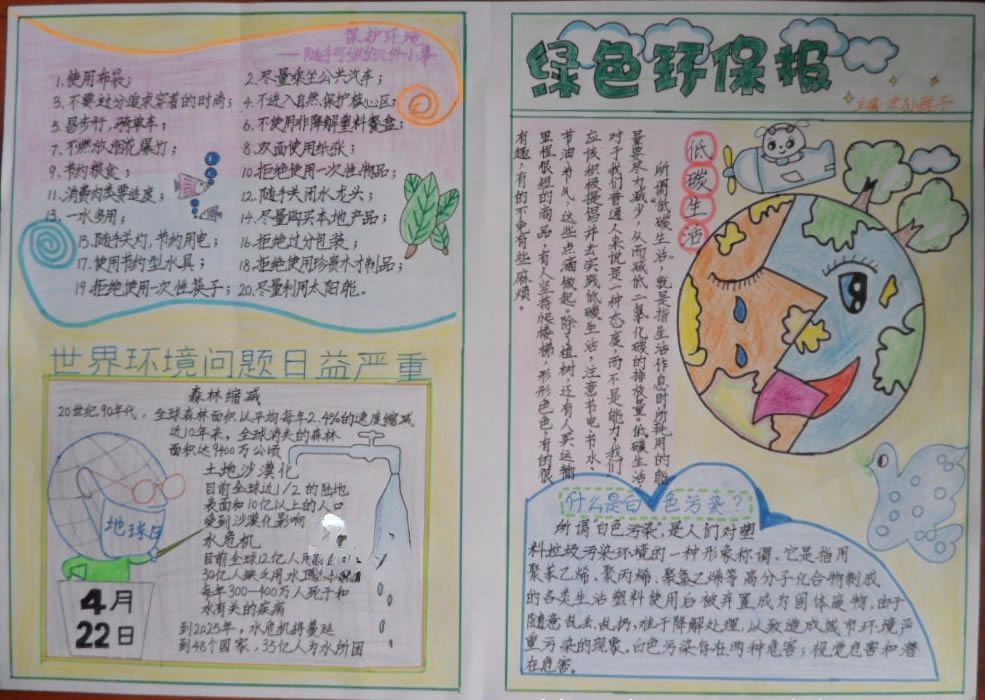 保护环境
——随手可做的几件小事
1.使用布袋；
2.尽量乘坐公共汽车；
3.不要过分追求穿着的时尚；
4.不进入自然保护核心区；
5.多步行，骑单车；
6.不使用非降解塑料餐盒；
7.不燃放烟花爆竹；
8.双面使用纸张；
9.节约粮食；
10.拒绝使用一次性物品；
11.消费肉类要适度；
12.随手关闭水龙头；
13.一水多用；
14.尽量购买本地产品；
15.随手关灯，节约用电；
16.拒绝过分包装；
17.使用节约型水具；
18.拒绝使用珍贵木才制品；
19.拒绝使用一次性筷子；
20.尽量利用太阳能。
世界环境问题日益严重
森林缩减
20世纪90年代，全球森林面积以平均每年2.4%的速度缩减
近10年来，全球消失的森林
面积达9400万公顷
土地沙漠化
目前全球近1/2的陆地
表面和10亿以上的人口
受到沙漠化影响
水危机
目前全球12亿人用
30亿人缺乏用水卫
每年300-400万人死于和
水有关的疾病
到2025年，水危机将蔓延
到48个国家，35亿人为水所困
地球日
4月
22日
绿色环保报
主编
低碳生活
所谓“低碳生活”，就是指生活作息时所耗用的能
量要尽力减少，从而减低二氧化碳的排放量。低碳生活
对于我们普通人来说是一种态度，而不是能力，我们
应该积极提倡并去实践低碳生活，注意节电、节水、
节油、节气，这些点滴做起。除了植树，还有人买运输
里程很短的商品，有人坚持爬楼梯，形形色色，有的很
有趣，有的不更有些麻烦。
什么是白色污染？
所谓“白色污染”，是人们对塑
料垃圾污染环境的一种形象称谓。它是指用
聚苯乙烯、聚丙烯、聚氯乙烯等高分子化合物制成
的各类生活塑料使用后被弃置成为固体废物，由于
随意乱丢乱扔，难于降解处理，以致造成城市环境严
重污染的现象。白色污染存在两种危害：视觉危害和潜
在危害。